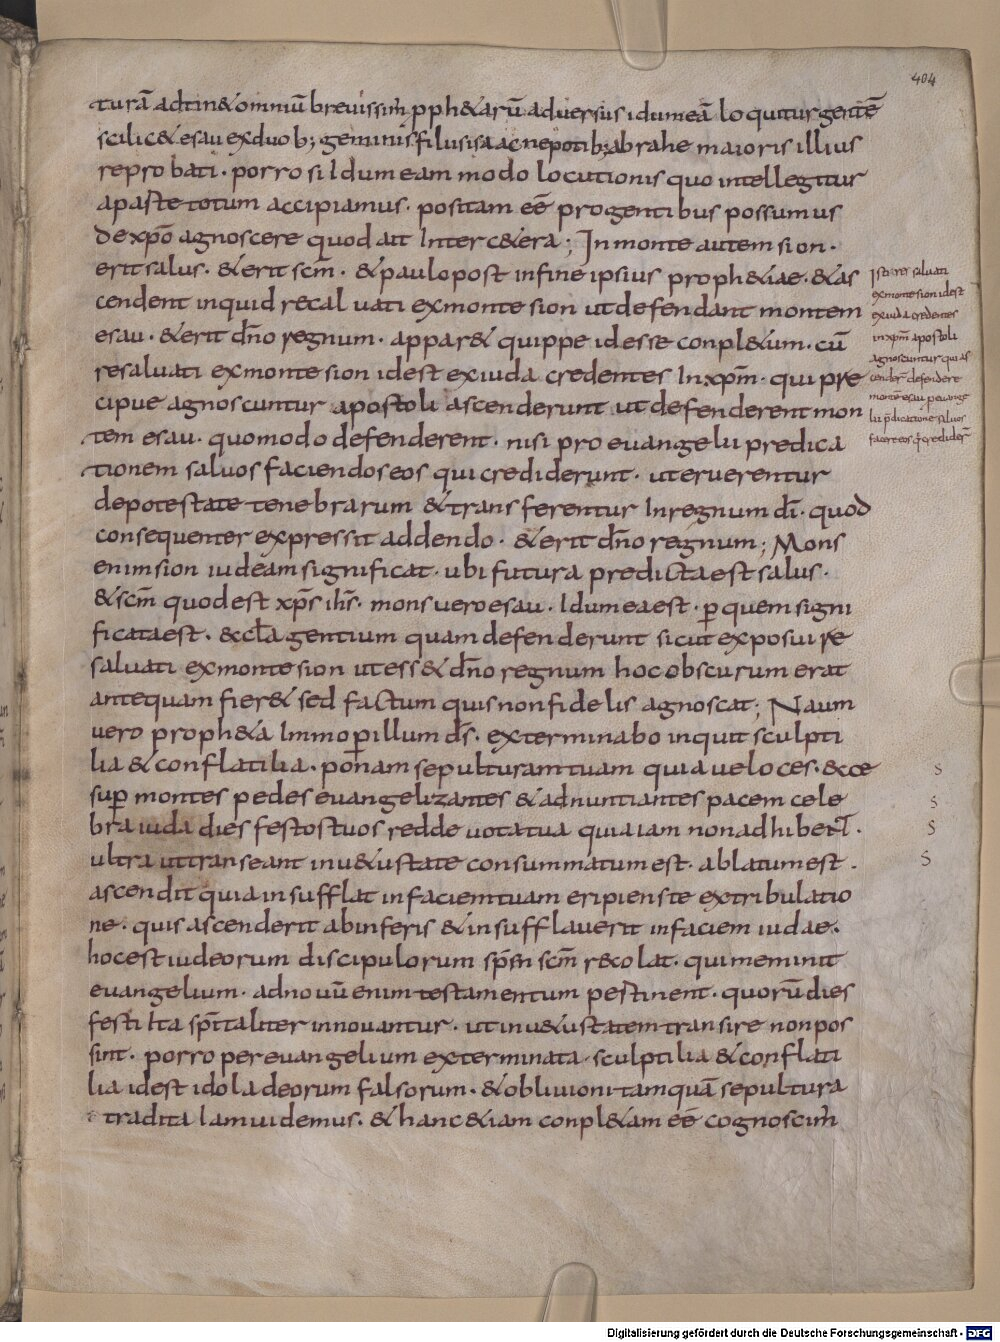 404
turā adtin& omniū breuissim̄ pph&arū aduersus idumeā loquitur gentē
scilic& esau exduob; geminis filus isaac nepotib; abrahe maioris illius
reprobati · porro si Idumeam modo locutionis quo intellegitur
apaste totum accipiamus · positam eē progentibus possumus
dexpō agnoscere quod ait Inter c&era ; In monte autem sion ·
erit salus · & erit scm̄ · & paulo post infine ipsius proph&iae · & as
cendent inquid recaluati exmonte sion ut defendant montem
esau · & erit dn̄o regnum · appar& quippe id esse conpl&um · cū
resaluati exmonte sion id est exiuda credentes Inxpm̄ · qui pre
cipue agnoscuntur apostoli ascenderunt ut defenderent mon
tem esau · quomodo defenderent · nisi pro euangelii predica
tionem saluos faciendos eos qui crediderunt · ut eruerentur
depotestate tenebrarum & transferentur Inregnum dī · quod
consequenter expressit addendo · & erit dn̄o regnum ; Mons
enim sion iudeam significat · ubi futura predicta est salus ·
& scm̄ quod est xp̄s ih̄s · mons uero esau · Idumea est · p quem signi
ficata est · &ccl̄a gentium quam defenderunt sicut exposui re
saluati exmonte sion ut ess& dn̄o regnum hoc obscurum erat
antequam fier& sed factum quis non fidelis agnoscat ; Naum
uero proph&a Immo p illum ds̄ · exterminabo inquit sculpti
lia & conflatilia · ponam sepulturam tuam quia ueloces · &cce
sup montes pedes euangelizantes & adnuntiantes pacem cele
bra iuda dies festos tuos redde uota tua quia iam non adhiber̄t ·
ultra ut transeant inu&ustate consummatum est · ablatum est ·
ascendit quia insufflat infaciem tuam eripiens te extribulatio
ne · quis ascenderit abinferis & insufflauerit infaciem iudae ·
hoc est iudeorum discipulorum sp̄m scm̄ recolat · qui meminit
euangelium · ad nouū enim testamentum pertinent · quorū dies
festi Ita sp̄italiter innouantur · ut inu&ustatem transire non pos
sint · porro per euangelium exterminata · sculptilia & conflati
lia id est idola deorum falsorum · & obliuioni tamquā sepultura
tradita Iam uidemus · & hanc &iam conpl&am eē cognoscim̄
Isti resaluati
exmonte sion id est
exiuda credentes
inxpm̄ apostoli
agnoscuntur qui as
cender̄ defendere
monte esau p euange
lii p̄dicatione saluos
facere eos q̄ credider̄
S
S
S
S
Digitalisierung gefördert durch die Deutsche Forschungsgemeinschaft - DFG